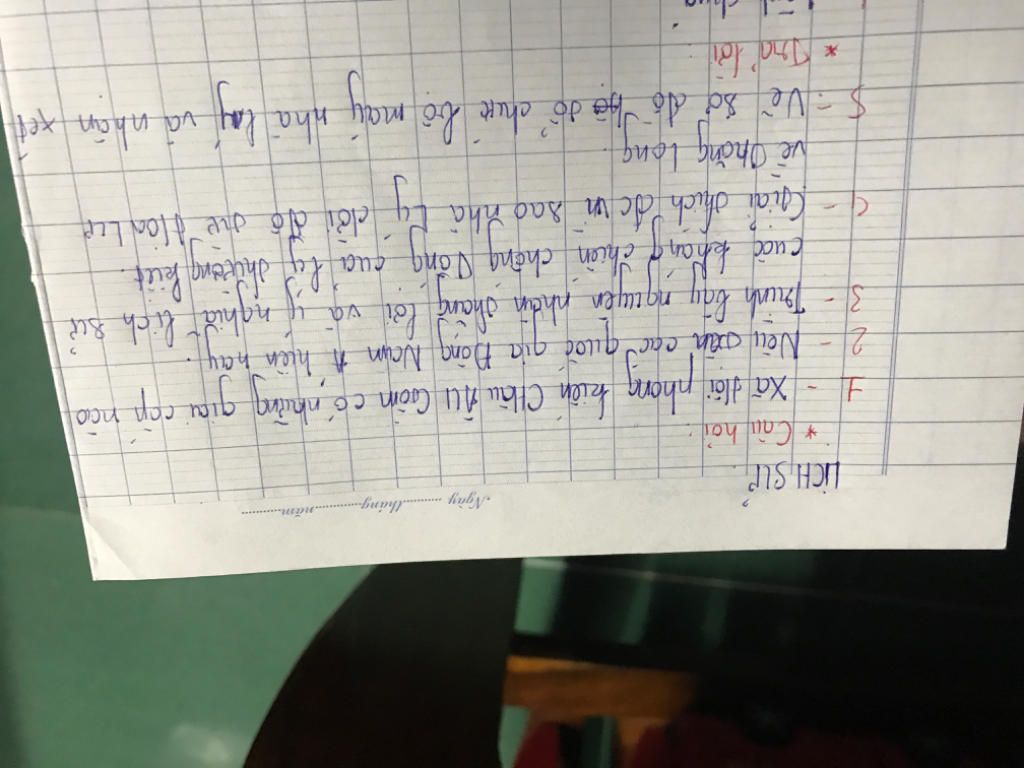 Ngày ........tháng............năm............
LỊCH SỬ
* Câu hỏi:
1 - Xã Hội phong kiến CHâu ÂU Gồm có những giai cấp nào
2 - Nêu các quốc gia Đông Nam Á hiện nay.
3 - Trình bày nguyên nhân thắng lợi và ý nghĩa lịch sử
cuộc kháng chiến chống Tống của Lý thường kiệt.
4 - Giải thích đc vì sao nhà Lý dời đô từ Hoa Lư
về Thăng Long.
5 - Vẽ sơ đồ tổ chức bộ máy nhà Lý và nhận xét
* Trả lời: